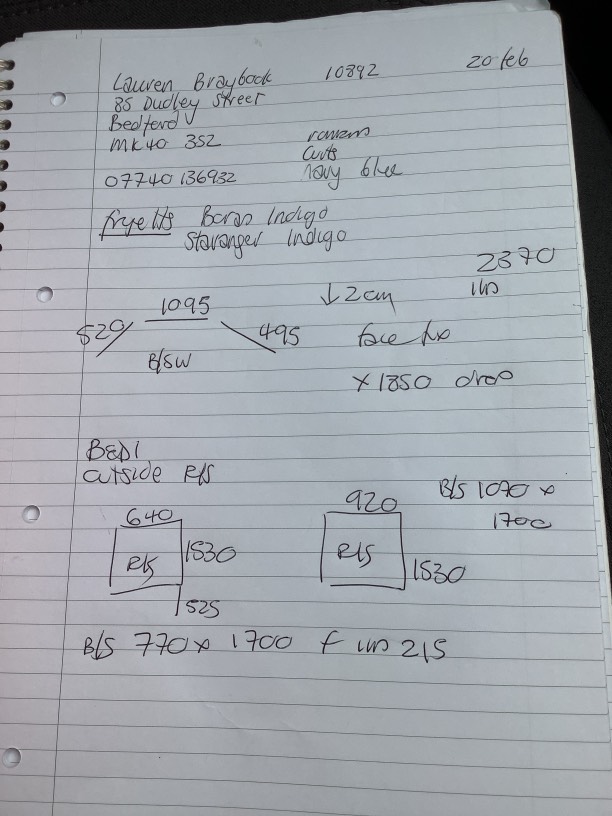 Lauren Braybook 10892 20 feb
85 Dudley Street
Bedford
MK40 3S2
romans
Curts
navy blue
07740 136932
fryetts Boras Indigo
Stavanger Indigo
2370
1095
↓ 2cm
520
495
face fix
B/SW
x 1850 drop
BED1
outside R/S
B/S 1070 x
1700
640
920
R/S 1530
R/S 1530
525
B/S 770 x 1700 f un 215